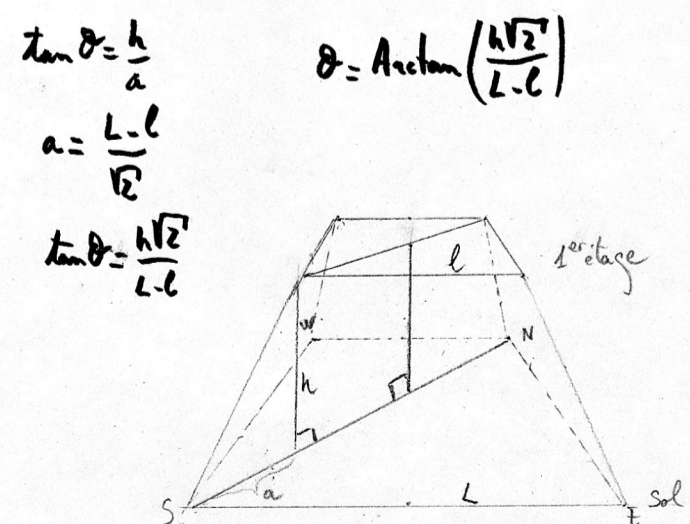 tan θ = h/a
θ = Arctan (h√2/L-l)
a = L-l/√2
tan θ = h√2/L-l
l
1er étage
W
N
h
a
L
S
E
Sol